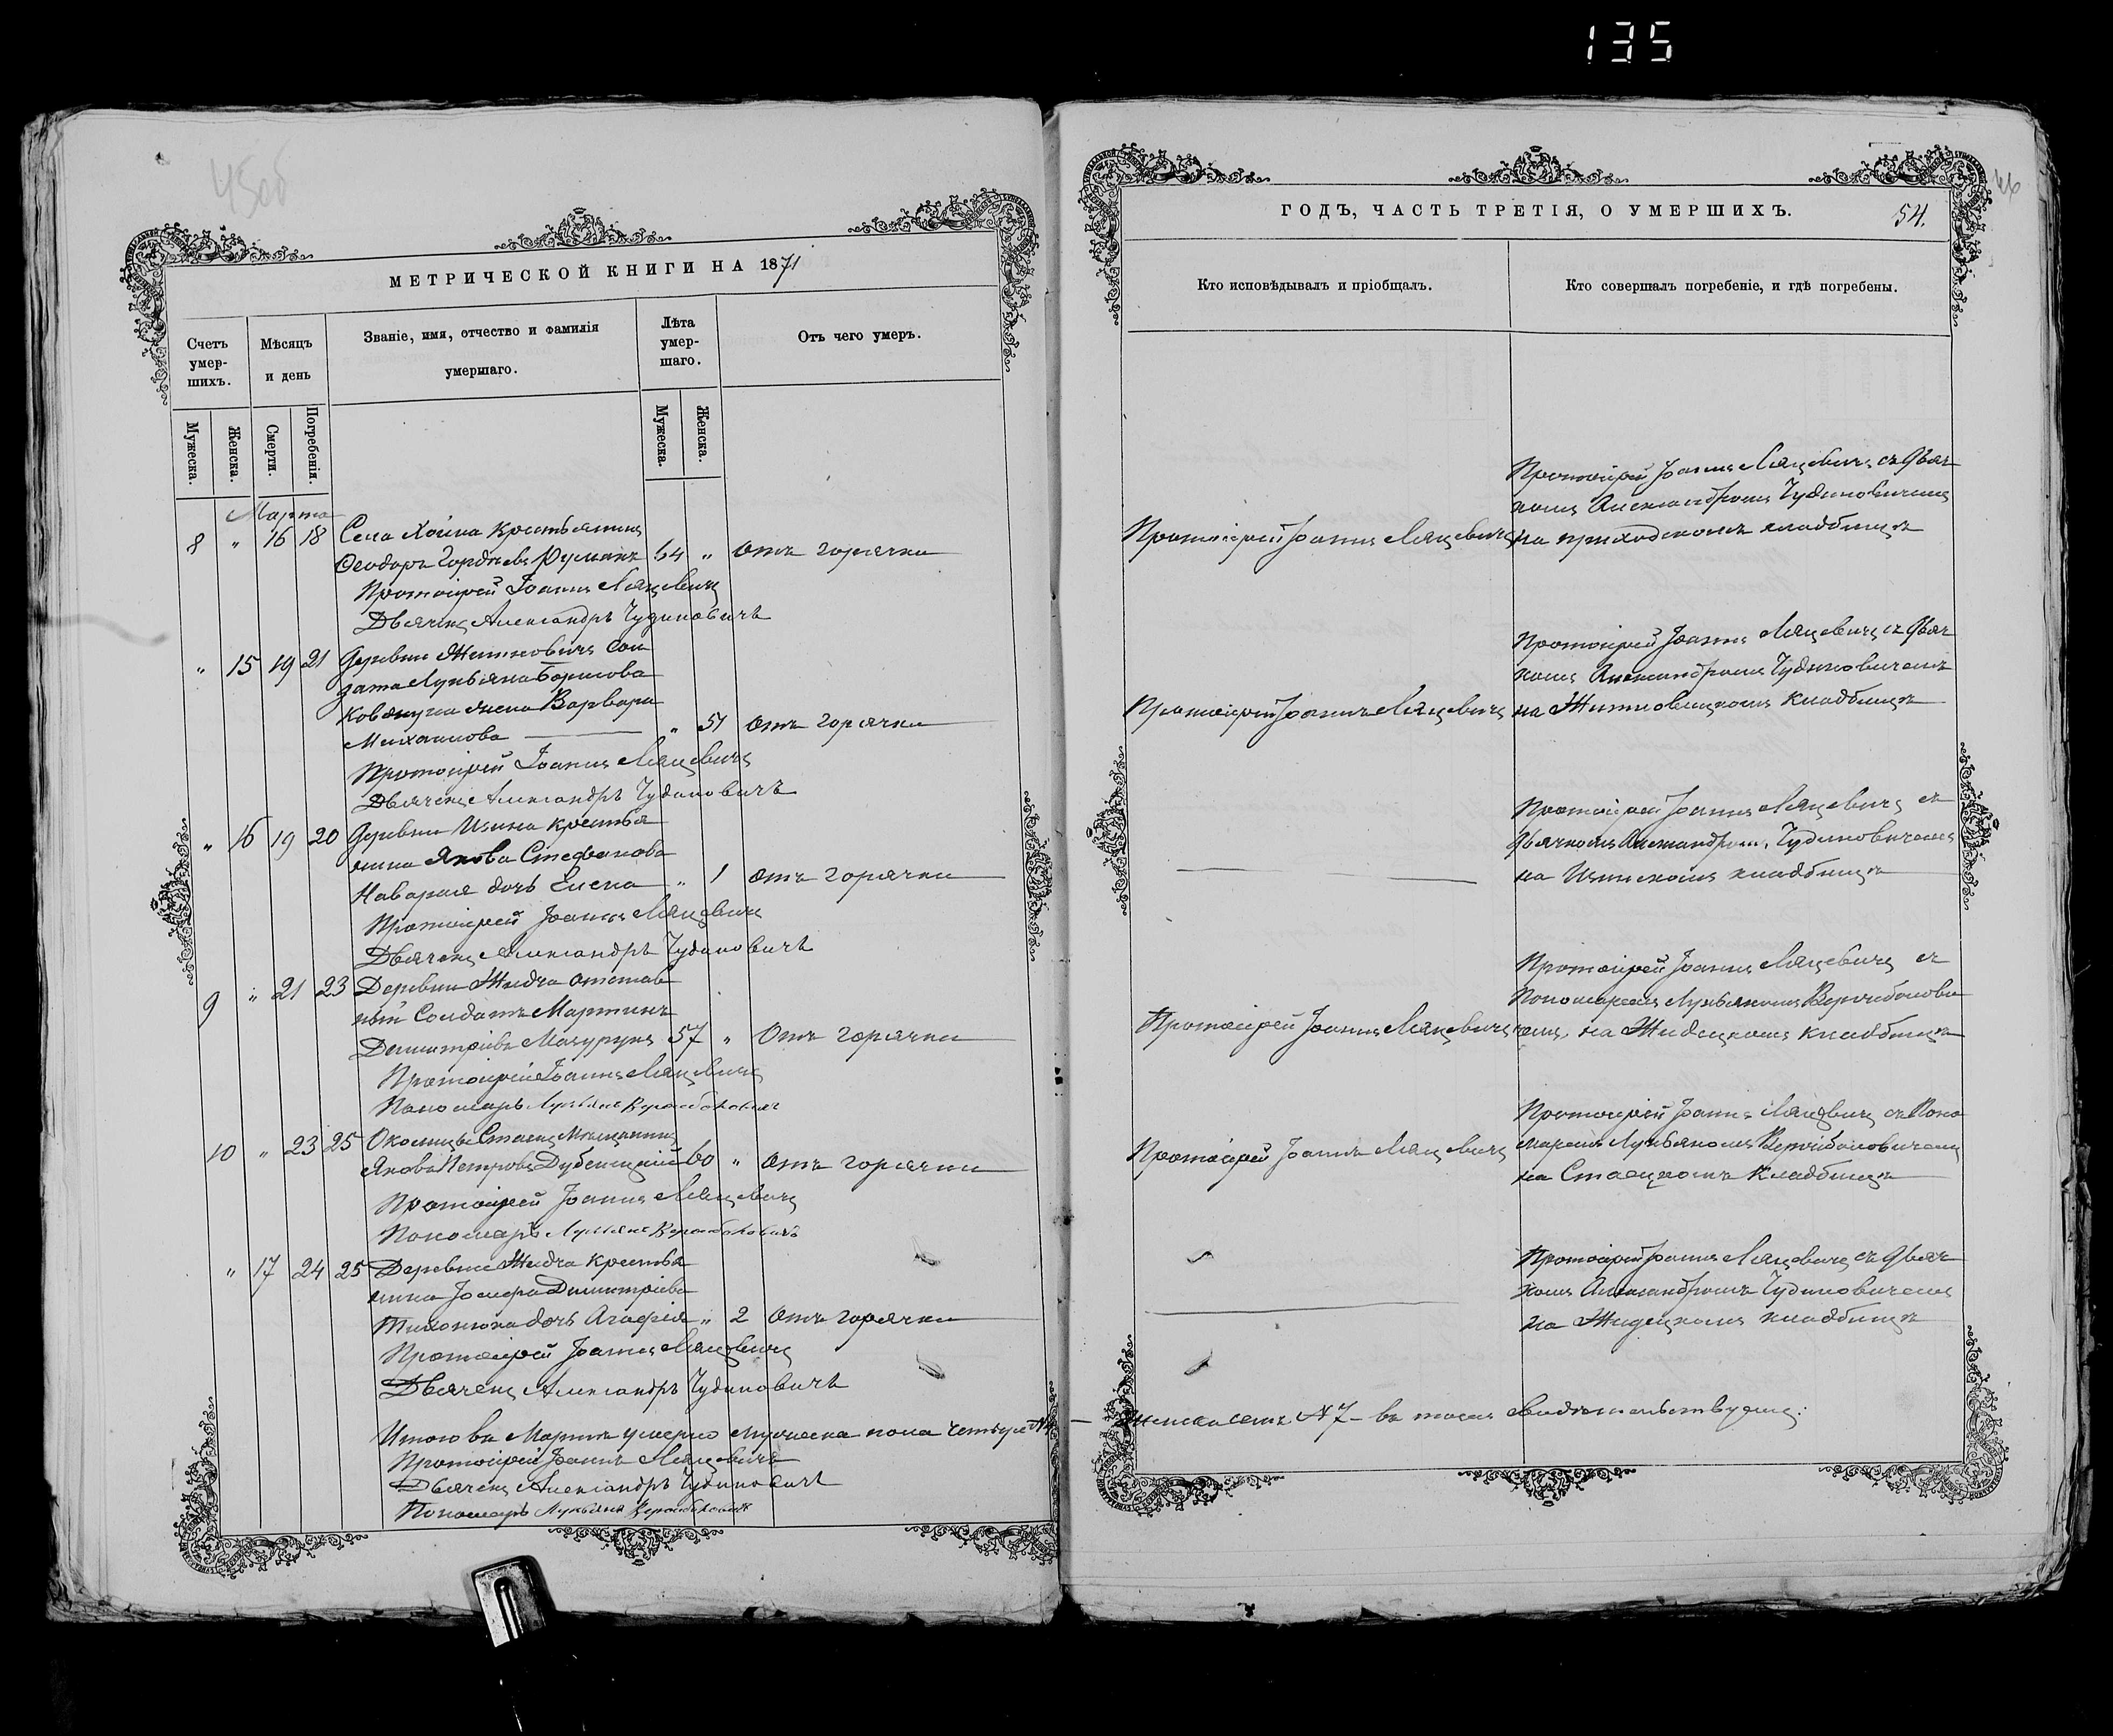 135
45об
МЕТРИЧЕСКОЙ КНИГИ НА 1871
Счетъ умер-шихъ.
Мѣсяцъ и день
Званіе, имя, отчество и фамилія умершаго.
Лѣта умер-шаго.
Отъ чего умеръ.
Мужеска.
Женска.
Смерти.
Погребенія.
Мужеска.
Женска.
Марта
8 " 16 18 Села Хойна крестьянинъ
Ѳеодоръ Гордѣевъ 64 " отъ горячки
Протоіерей Іоаннъ Ляцевичъ
Дьячекъ Александръ Чудиновичъ
" 15 19 21 Деревни Житновичъ Сол
дата Лукьяна Борисова
жена Варвара
Михаилова " 51 отъ горячки
Протоіерей Іоаннъ Ляцевичъ
Дьячекъ Александръ Чудиновичъ
" 16 19 20 Деревни Изина крестья
нина Якова Стефанова
дочь Елена " 1 отъ горячки
Протоіерей Іоаннъ Ляцевичъ
Дьячекъ Александръ Чудиновичъ
9 " 21 23 Деревни Жидча отстав
ный Солдатъ Мартинъ
Димитріевъ 57 " Отъ горячки
Протоіерей Іоаннъ Ляцевичъ
Пономарь Лукьянъ
10 " 23 25 Околицы Мѣщанинъ
Яковъ Петровъ Дубенецкій 60 " отъ горячки
Протоіерей Іоаннъ Ляцевичъ
Пономарь Лукьянъ
" 17 24 25 Деревни Жидча крестья
нина Іосифа Димитріева
дочь Агафія " 2 отъ горячки
Протоіерей Іоаннъ Ляцевичъ
Дьячекъ Александръ Чудиновичъ
Итого въ Мартѣ умерло мужеска пола четыре №4
Протоіерей Іоаннъ Ляцевичъ
Дьячекъ Александръ Чудиновичъ
Пономарь Лукьянъ
46
ГОДЪ, ЧАСТЬ ТРЕТІЯ, О УМЕРШИХЪ.
54.
Кто исповѣдывалъ и пріобщалъ.
Кто совершалъ погребеніе, и гдѣ погребены.
Протоіерей Іоаннъ Ляцевичъ съ дьяч
комъ Александромъ Чудиновичемъ
Протоіерей Іоаннъ Ляцевичъ на приходскомъ кладбищѣ
Протоіерей Іоаннъ Ляцевичъ съ дьяч
комъ Александромъ Чудиновичемъ
Протоіерей Іоаннъ Ляцевичъ на Житновицкомъ кладбищѣ
Протоіерей Іоаннъ Ляцевичъ съ
дьячкомъ Александромъ Чудиновичемъ
на Изинскомъ кладбищѣ
Протоіерей Іоаннъ Ляцевичъ съ
Пономаремъ Лукьяномъ
Протоіерей Іоаннъ Ляцевичъ на Жидецкомъ кладбищѣ
Протоіерей Іоаннъ Ляцевичъ съ Поно
Протоіерей Іоаннъ Ляцевичъ маремъ Лукьяномъ
на Стаецкомъ кладбищѣ
Протоіерей Іоаннъ Ляцевичъ съ дьяч
комъ Александромъ Чудиновичемъ
на Жидецкомъ кладбищѣ
№7 – въ томъ свидѣтельствуемъ: